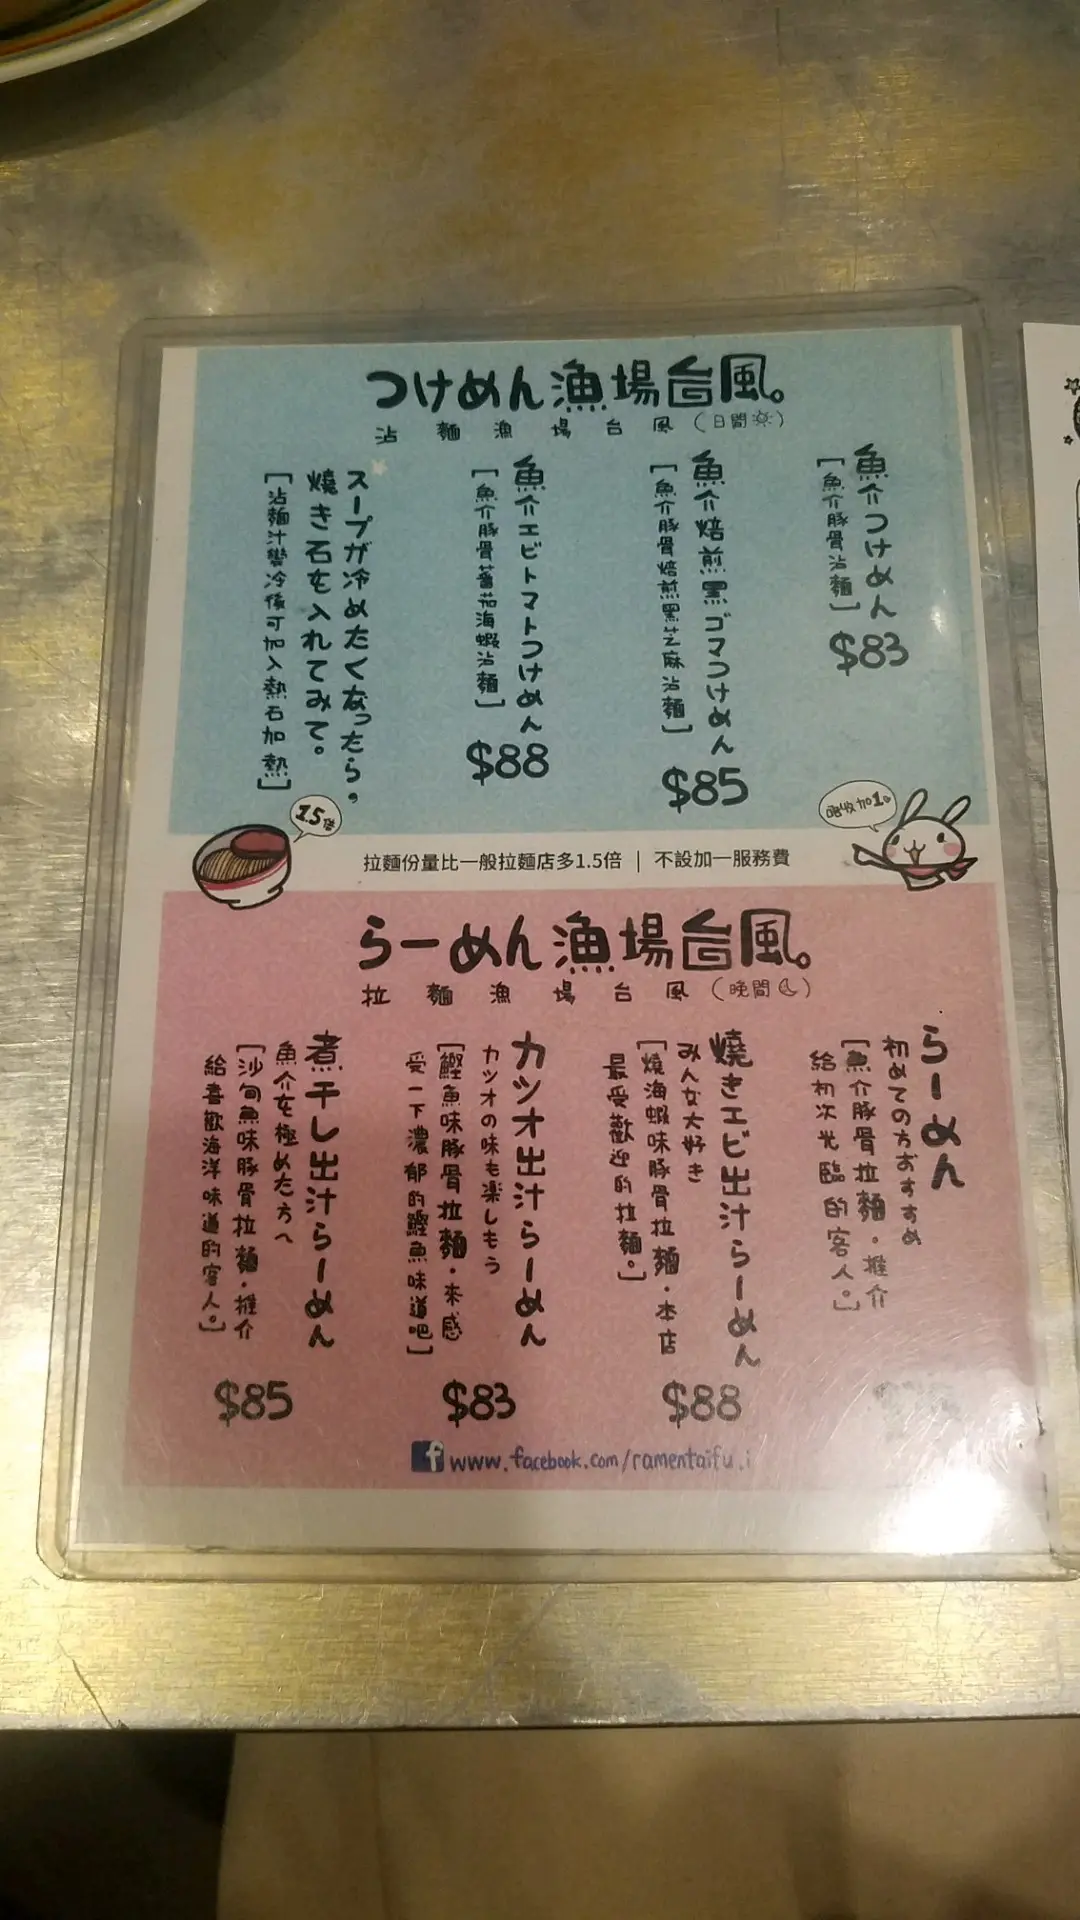 つけめん漁場台風。
沾麵漁場台風(日間)
魚介つけめん
[魚介豚骨沾麵]
$83
魚介焙煎黒ゴマつけめん
[魚介豚骨焙煎黑芝麻沾麵]
$85
魚介エビトマトつけめん
[魚介豚骨蕃茄海蝦沾麵]
$88
スープが冷めたくなったら。
燒き石を入れてみて。
[沾麵汁變冷後可加入熱石加熱]
1.5倍
唔收加1。
拉麵份量比一般拉麵店多1.5倍 | 不設加一服務費
らーめん漁場台風。
拉麵漁場台風(晚間)
らーめん
初めての方おすすめ
[魚介豚骨拉麵·推介
給初次光臨的客人。]
燒きエビ出汁らーめん
みんな大好き
[燒海蝦味豚骨拉麵·本店
最受歡迎的拉麵。]
$88
カツオ出汁らーめん
カツオの味も楽しもう
[鰹魚味豚骨拉麵·來感
受一下濃郁的鰹魚味道吧]
$83
煮干し出汁らーめん
魚介を極めた方へ
[沙甸魚味豚骨拉麵·推介
給喜歡海洋味道的客人。]
$85
f www.facebook.com/ramentaifu.